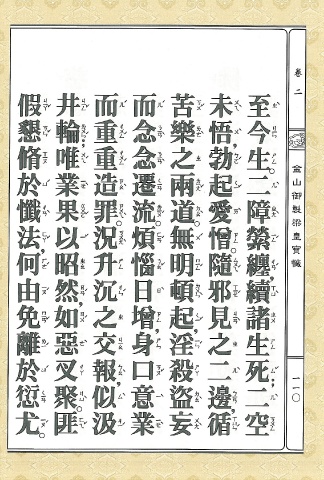 至今生。二障縈纏,續諸生死,二空
未悟,勃起愛憎。隨邪見之二邊,循
苦樂之兩道。無明頓起,淫殺盜妄
而念念遷流。煩惱日增,身口意業
而重重造罪。況升沉之交報,似汲
井輪,唯業果以昭然,如惡叉聚。匪
假懇脩於懺法,何由免離於愆尤。
卷二
金山御製梁皇寶懺
一一〇